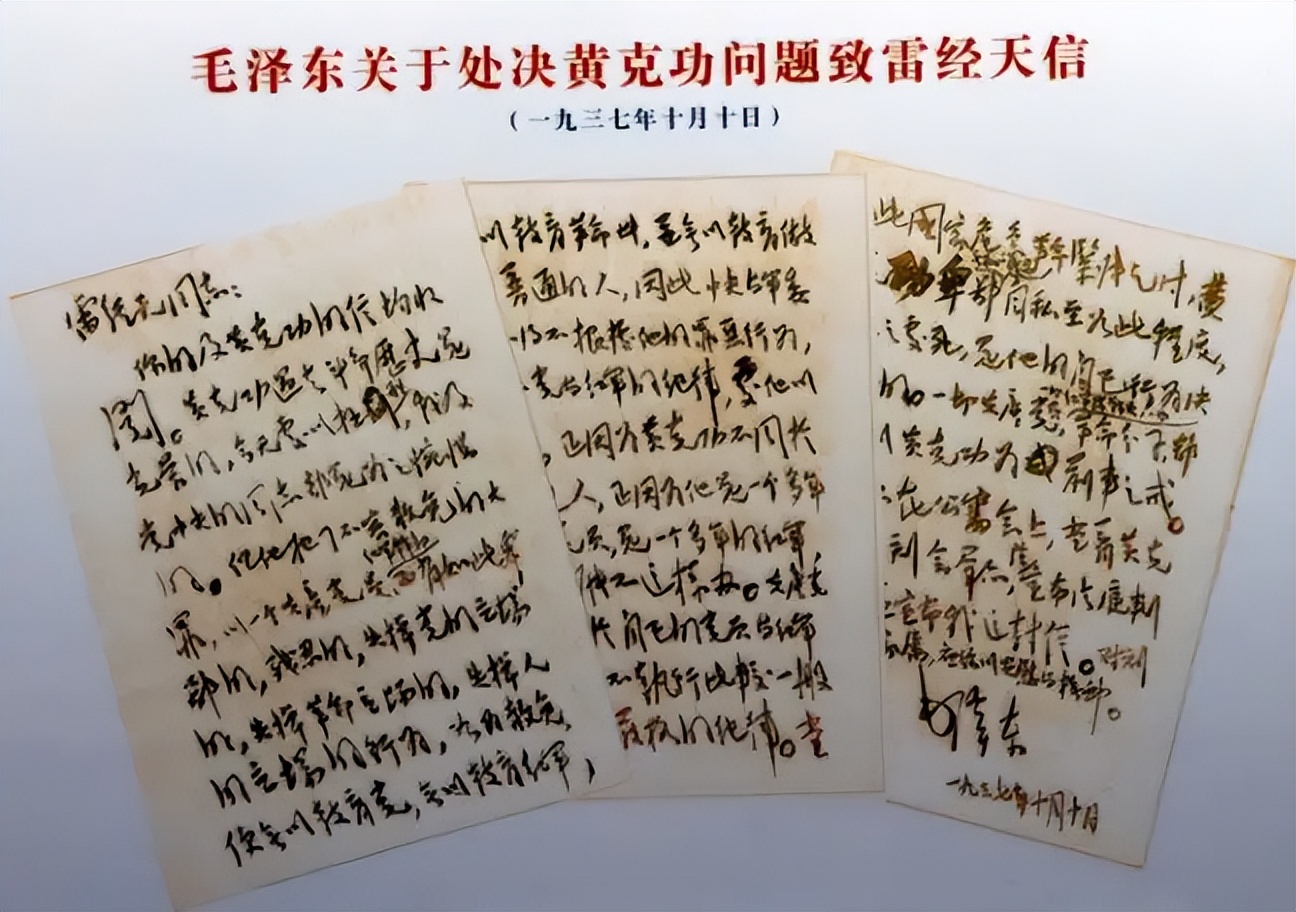 毛泽东关于处决黄克功问题致雷经天信
（一九三七年十月十日）
雷经天同志：
你的及黄克功的信均收
阅。黄克功过去斗争历史是
光荣的，今天处以极刑，我及
党中央的同志都是为之惋惜
的。但他犯了不容赦免的大
红军干部
罪，以一个共产党员而有如此卑
鄙的，残忍的，失掉党的立场
的，失掉革命立场的，失掉人
的立场的行为，如为赦免，
便无以教育党，无以教育红军，
以教育革命者，并无以教育做
普通的人，因此中央与军委
得不根据他的罪恶行为，
党与红军的纪律，处他以
，正因为黄克功不同于
人，正因为他是一个多年
党员，是一个多年的红军，
不能不这样办。共产党
于自己的党员与红军
不执行比较一般
严格的纪律。当
此国家危急革命紧张之时，黄
功卑鄙自私至如此程度，
之处死，是他的自己行为决
的。一切共产党员，革命分子，都
以黄克功为前车之戒。
在公审会上，当着黄克
到会群众，除宣布法庭判
宣布我这封信。对刘
家属，应给以安慰与抚恤。
毛泽东
一九三七年十月十日